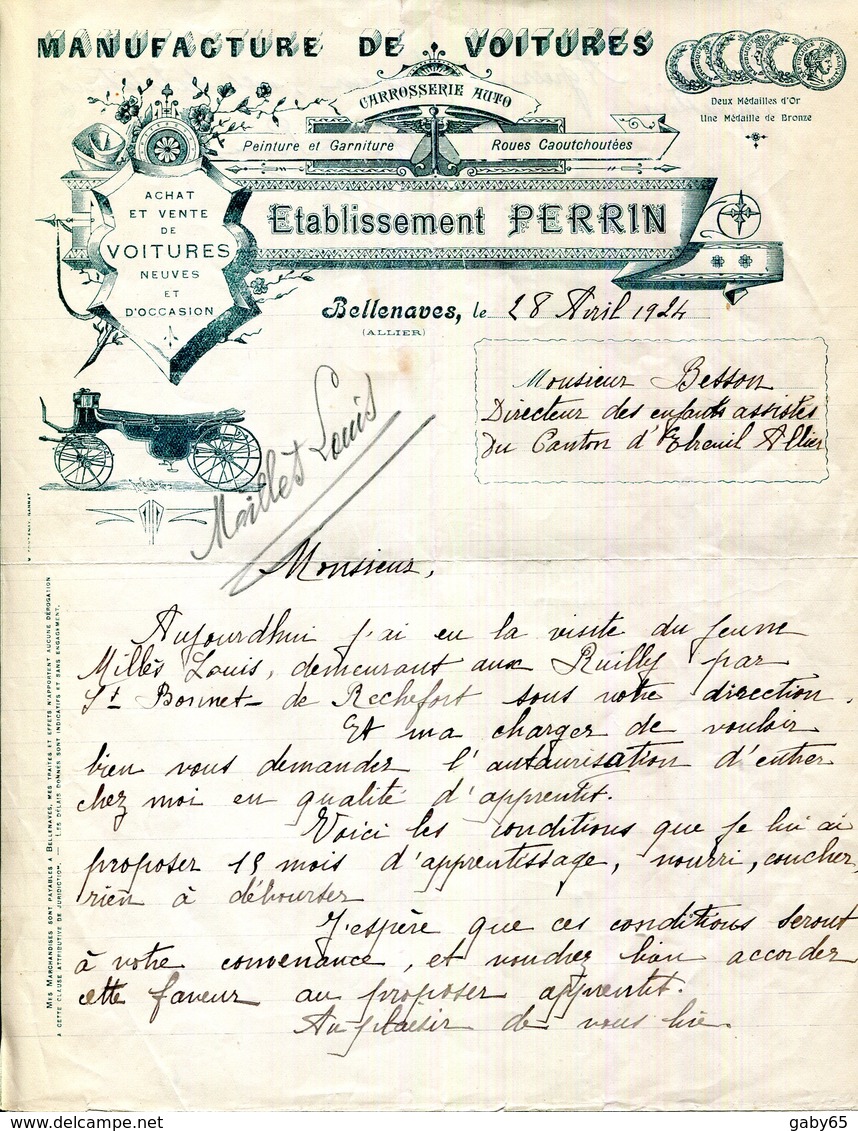 MANUFACTURE DE VOITURES
CARROSSERIE AUTO
Deux Médailles d'Or
Une Médaille de Bronze
Peinture et Garniture
Roues Caoutchoutées
ACHAT
ET VENTE
DE
VOITURES
NEUVES
ET
D'OCCASION
Etablissement PERRIN
Bellenaves, le 28 Avril 1924
(ALLIER)
Monsieur Besson
Directeur des enfants assistés
du Canton d'Ebreuil Allier
Millet Louis
Monsieur,
Aujourdhui j'ai eu la visite du jeune
Millès Louis, demeurant aux Ruilly par
St Bonnet de Rochefort sous votre direction.
Et ma charger de vouloir
bien vous demander l'autaurisation d'entrer
chez moi en qualité d'apprentit.
Voici les conditions que je lui ai
proposer 15 mois d'apprentissage, nourri, coucher,
rien à débourser
J'espère que ces conditions seront
à votre convenance, et voudrez bien accorder
cette faveur au proposer apprentit.
Au plaisir de vous lire.
MES MARCHANDISES SONT PAYABLES A BELLENAVES, MES TRAITES ET EFFETS N'APPORTENT AUCUNE DÉROGATION
A CETTE CLAUSE ATTRIBUTIVE DE JURIDICTION. — LES DÉLAIS DONNÉS SONT INDICATIFS ET SANS ENGAGEMENT.
www.delcampe.net
gaby65